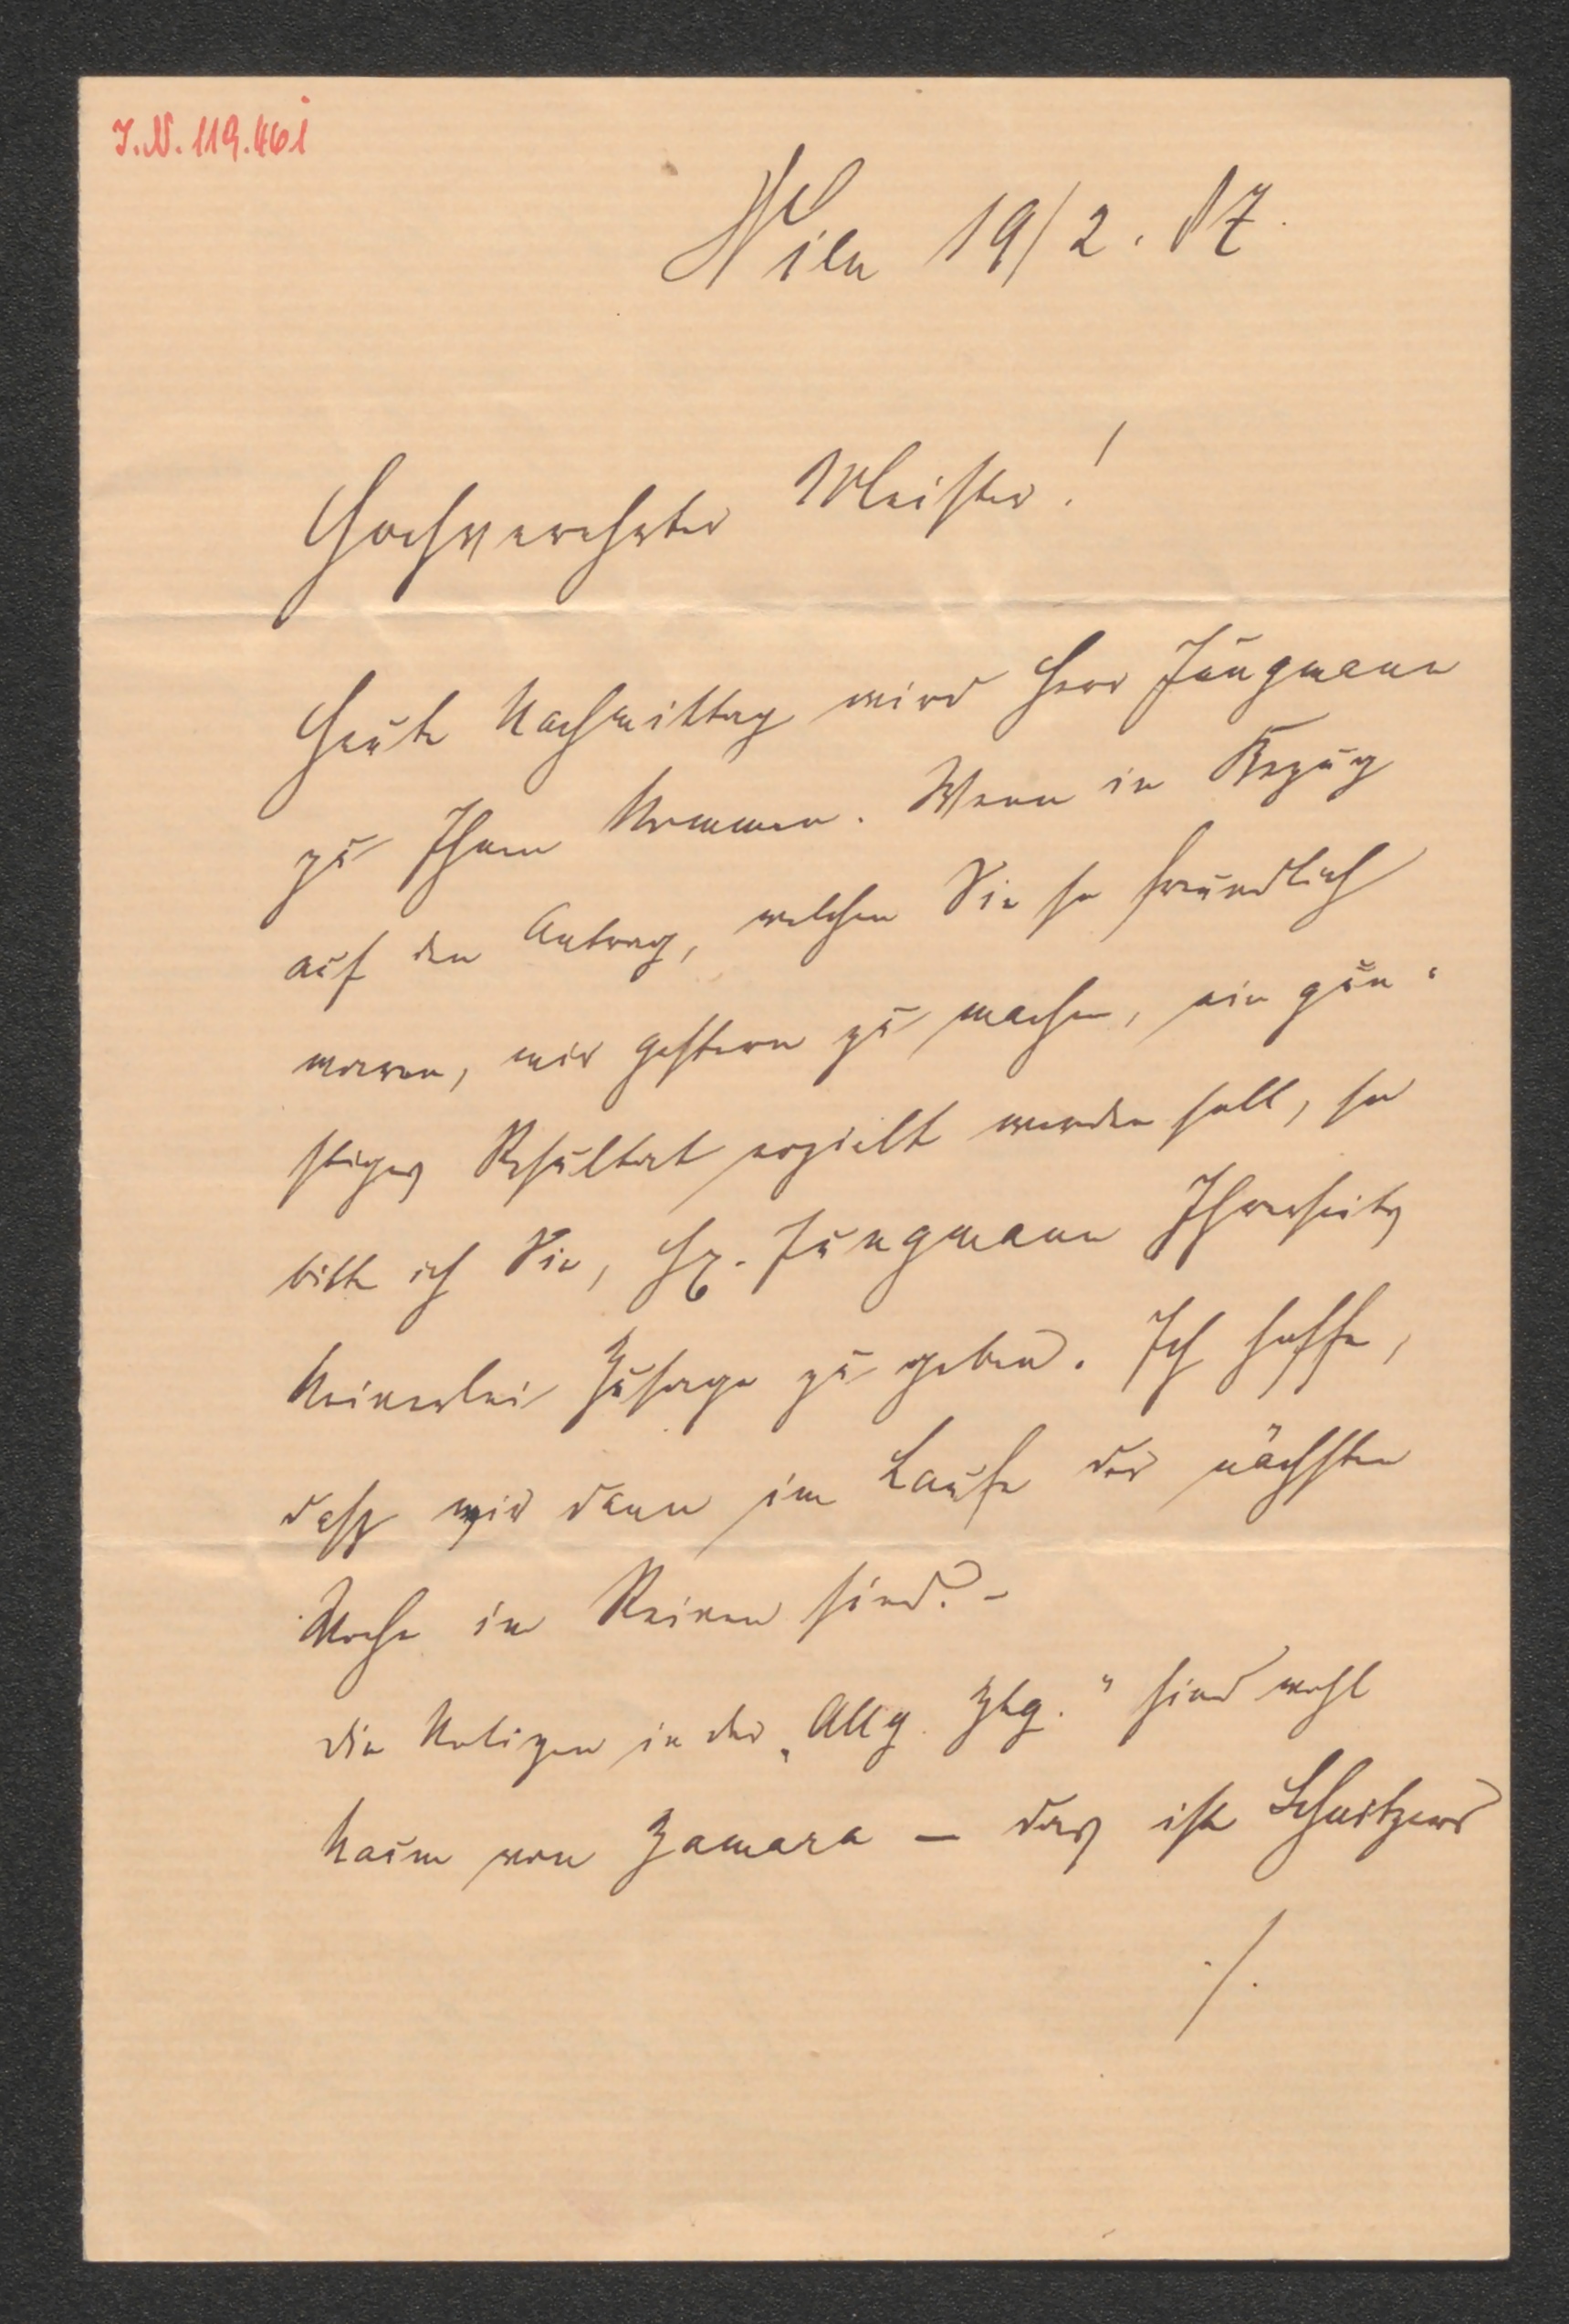 I.N. 119.461
Wien 19/2. 87.
Hochverehrter Meister!
Heute Nachmittag wird Herr Jungmann
zu Ihnen kommen. Wenn in Bezug
auf den Antrag, welchen Sie so freundlich
waren, mir gestern zu machen, ein gün-
stiges Resultat erzielt werden soll, so
bitte ich Sie, H. Jungmann Ihrerseits
keinerlei Zusage zu geben. Ich hoffe,
dass wir dann im Laufe der nächsten
Woche im Reinen sind. –
Die Notizen in der „Allg. Ztg." sind wohl
kaum von Zamara – das ist
./.